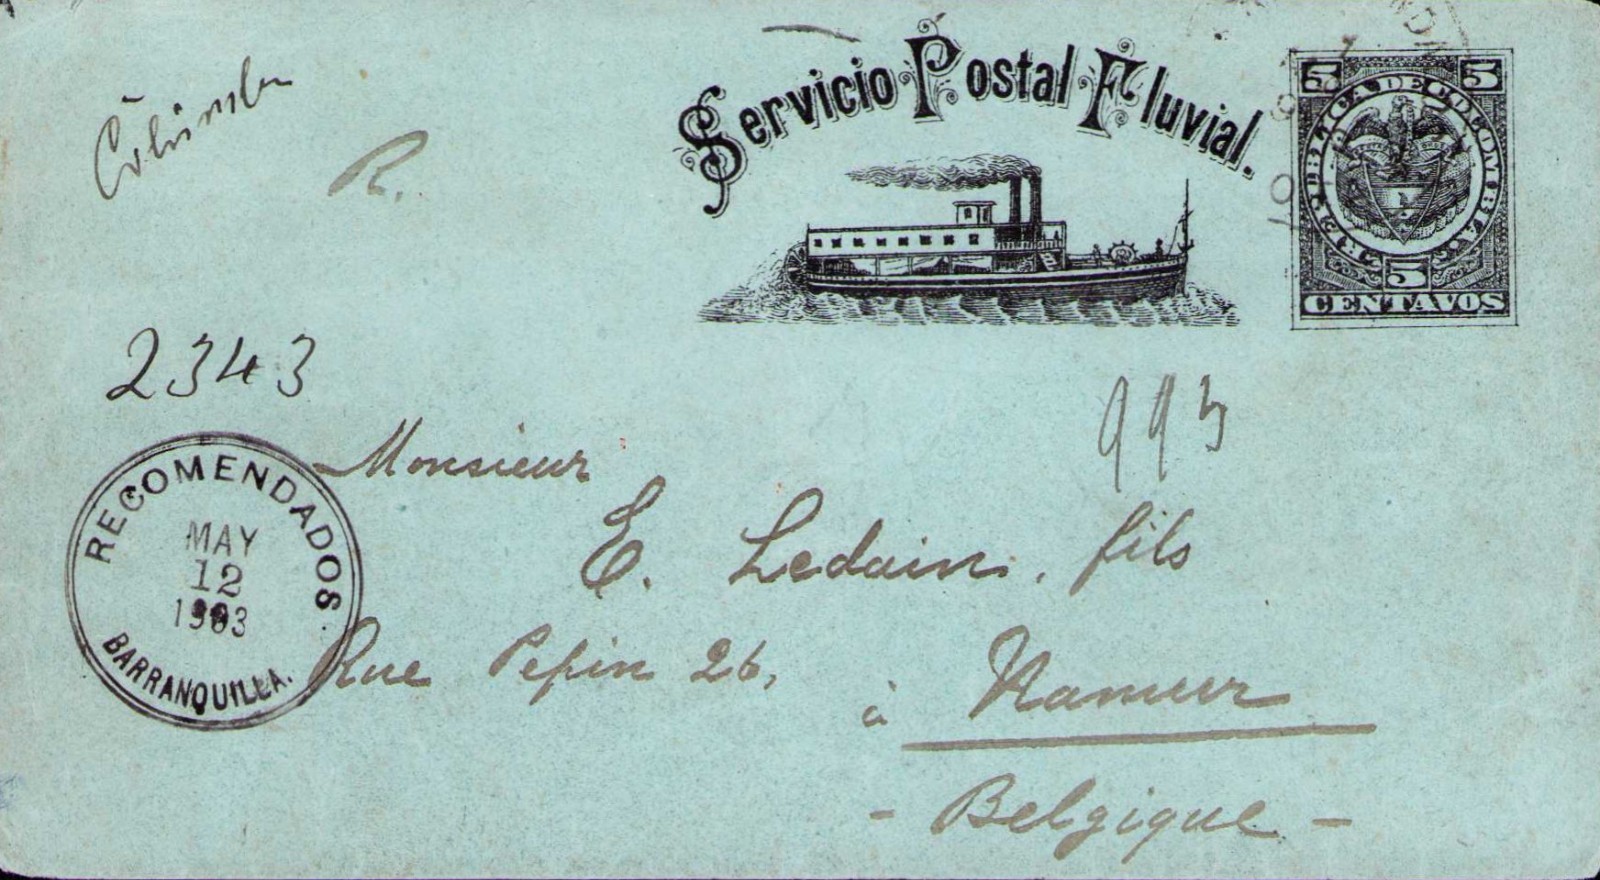 Servicio Postal Fluvial.
5 5
REPUBLICA DE COLOMBIA
5
CENTAVOS
R.
2343
993
RECOMENDADOS
MAY
12
1903
BARRANQUILLA.
Monsieur
E. Ledain, fils
Rue Pepin 26,
à Namur
- Belgique -